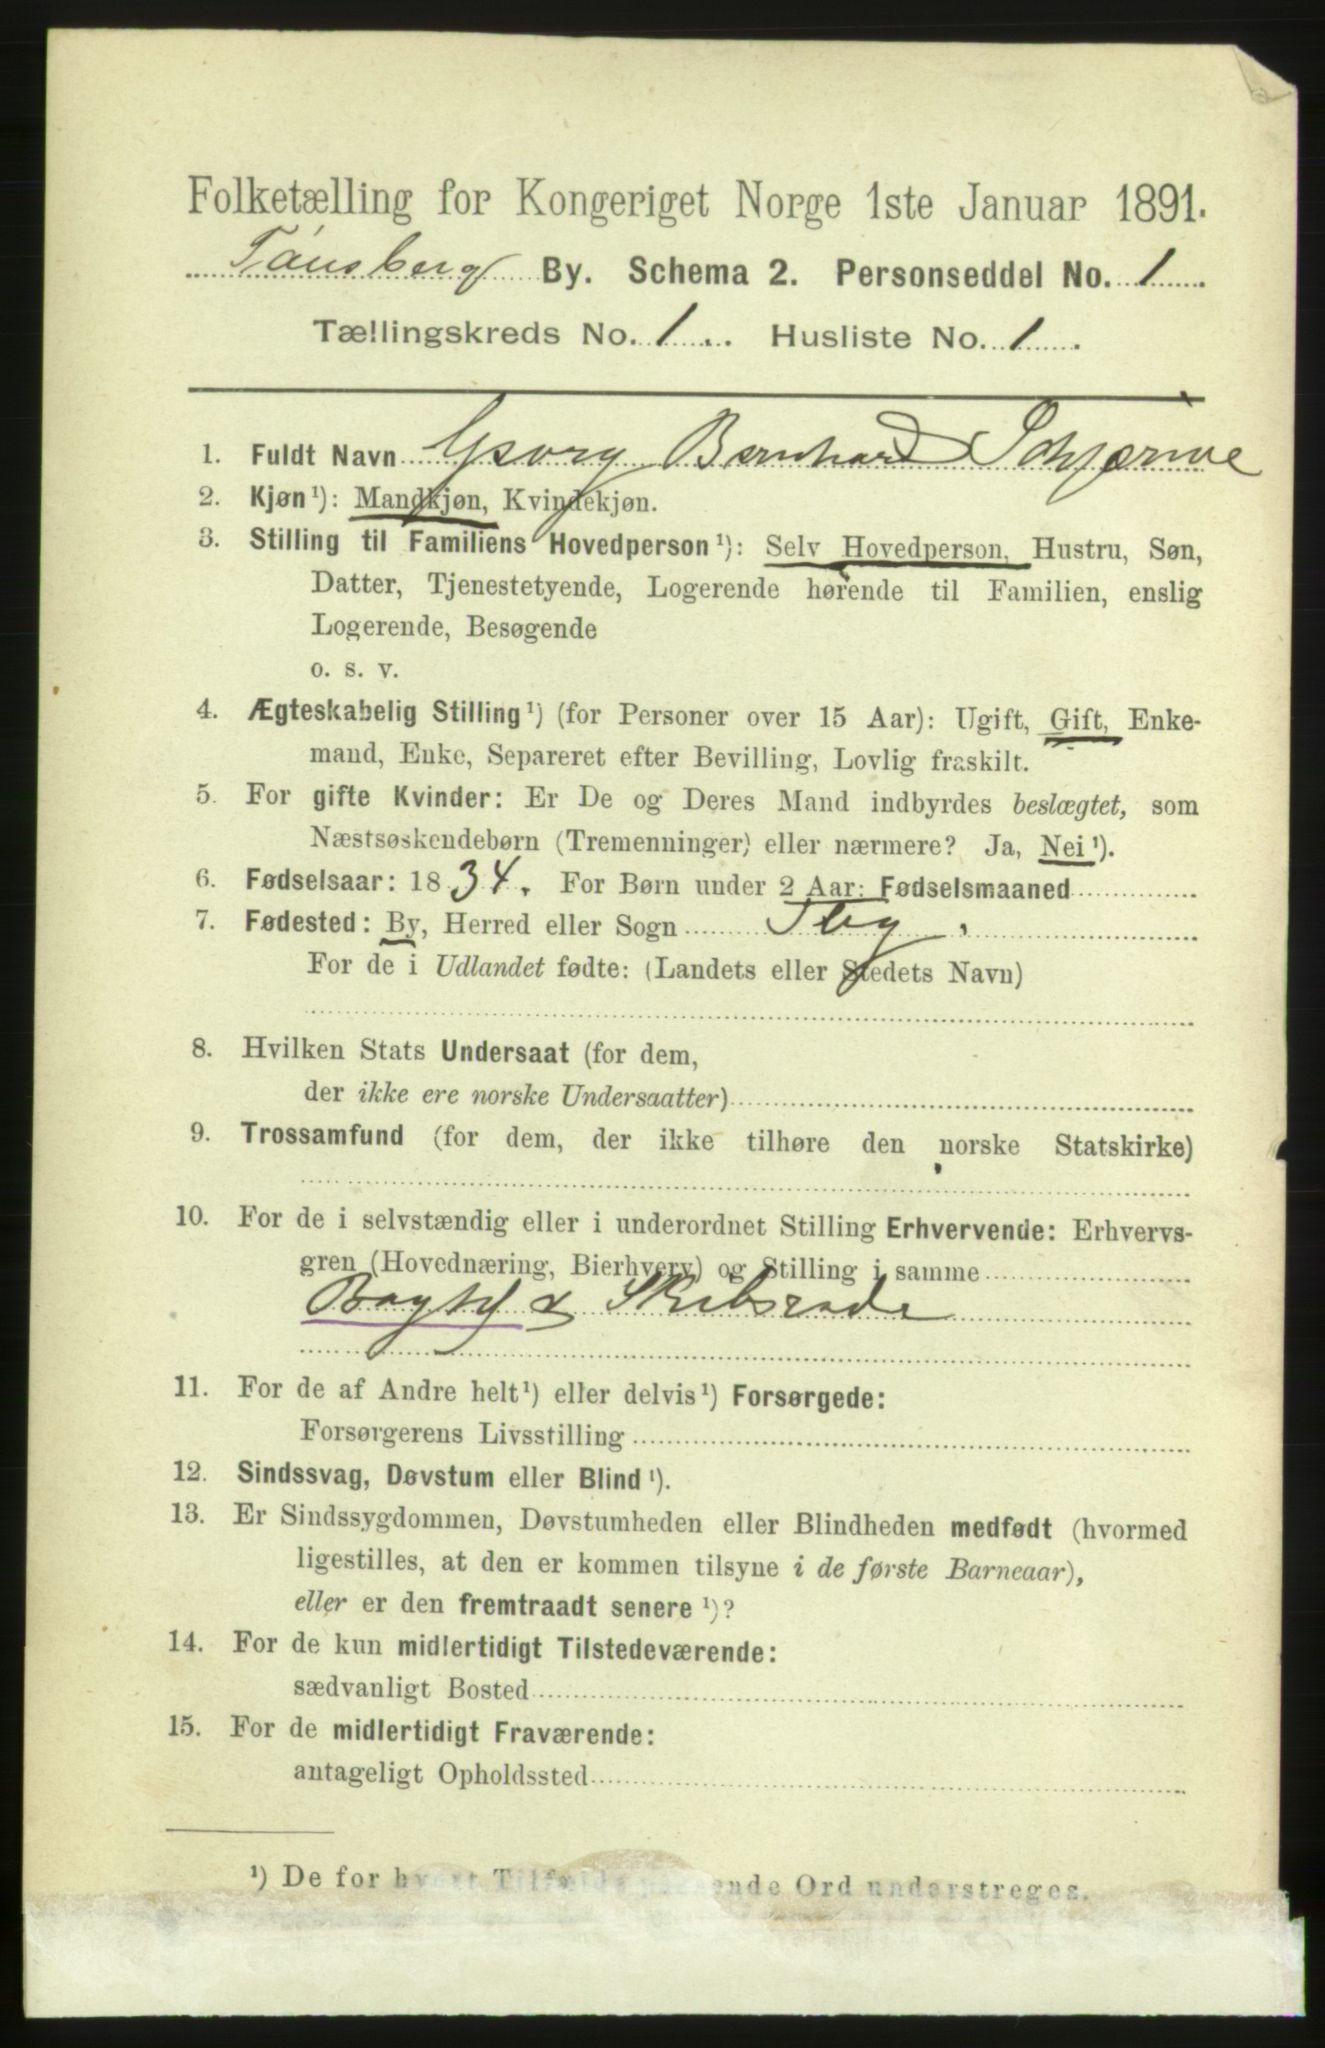 Folketælling for Kongeriget Norge 1ste Januar 1891.
Tønsberg By. Schema 2. Personseddel No. 1.
Tællingskreds No. 1. Husliste No. 1.
1. Fuldt Navn Georg Bernhard
2. Kjøn¹): Mandkjøn, Kvindekjøn.
3. Stilling til Familiens Hovedperson¹): Selv Hovedperson, Hustru, Søn,
Datter, Tjenestetyende, Logerende hørende til Familien, enslig
Logerende, Besøgende
o. s. v.
4. Ægteskabelig Stilling¹) (for Personer over 15 Aar): Ugift, Gift, Enke-
mand, Enke, Separeret efter Bevilling, Lovlig fraskilt.
5. For gifte Kvinder: Er De og Deres Mand indbyrdes beslægtet, som
Næstsøskendebørn (Tremenninger) eller nærmere? Ja, Nei¹).
6. Fødselsaar: 1834. For Børn under 2 Aar: Fødselsmaaned
7. Fødested: By, Herred eller Sogn Tbg.
For de i Udlandet fødte: (Landets eller Stedets Navn)
8. Hvilken Stats Undersaat (for dem,
der ikke ere norske Undersaatter)
9. Trossamfund (for dem, der ikke tilhøre den norske Statskirke)
10. For de i selvstændig eller i underordnet Stilling Erhvervende: Erhvervs-
gren (Hovednæring, Bierhverv) og Stilling i samme
& Skibsrede
11. For de af Andre helt¹) eller delvis¹) Forsørgede:
Forsørgerens Livsstilling
12. Sindssvag, Døvstum eller Blind¹).
13. Er Sindssygdommen, Døvstumheden eller Blindheden medfødt (hvormed
ligestilles, at den er kommen tilsyne i de første Barneaar),
eller er den fremtraadt senere¹)?
14. For de kun midlertidigt Tilstedeværende:
sædvanligt Bosted
15. For de midlertidigt Fraværende:
antageligt Opholdssted
¹) De for hvert Tilfælde passende Ord understreges.